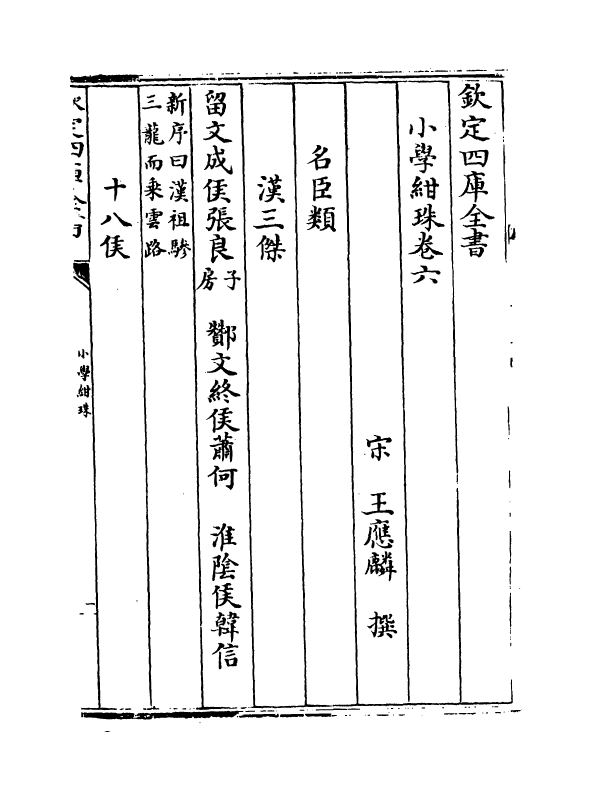 欽定四庫全書
小學紺珠卷六
宋　王應麟　撰
名臣類
漢三傑
留文成侯張良子房　酇文終侯蕭何　淮陰侯韓信
新序曰漢祖驂
三龍而乘雲路
十八侯
小學紺珠